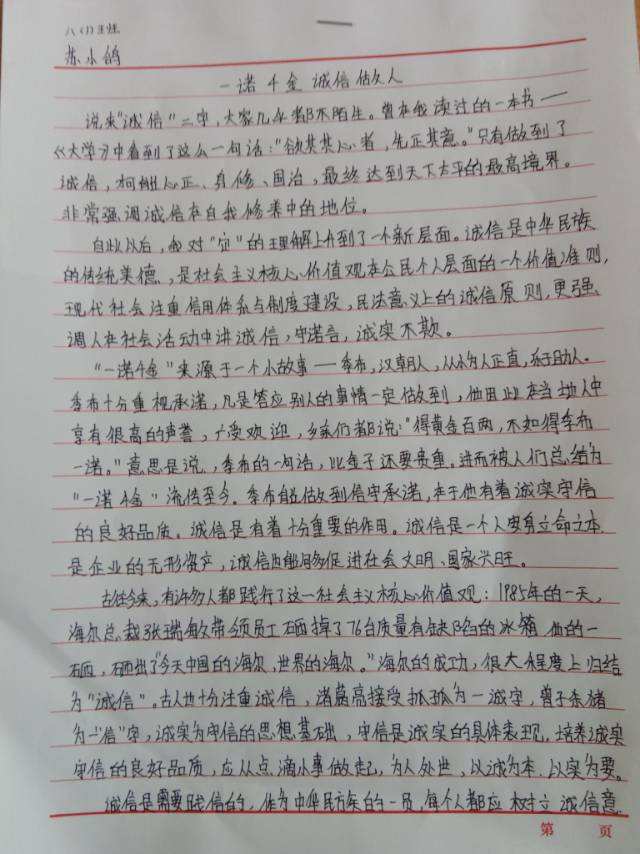 八(1)班
苏小鸽
一诺千金 诚信做人
说来"诚信"二字,大家几乎都不陌生。曾在我读过的一本书——
《大学》中看到了这么一句话:"欲其其心者,先正其意。"只有做到了
诚信,才能心正、身修、国治,最终达到天下太平的最高境界。
非常强调诚信在自我修养中的地位。
自此以后,我对"信"的理解上升到了一个新层面。诚信是中华民族
的传统美德,是社会主义核心价值观在公民个人层面的一个价值准则,
现代社会注重信用体系与制度建设,民法意义上的诚信原则,更强
调人在社会活动中讲诚信,守诺言,诚实不欺。
"一诺千金"来源于一个小故事——季布,汉朝人,从小为人正直,乐于助人。
季布十分重视承诺,凡是答应别人的事情一定做到,他因此在当地人中
享有很高的声誉,广受欢迎,乡亲们都说:"得黄金百两,不如得季布
一诺。"意思是说,季布的一句话,比金子还要贵重。进而被人们总结为
"一诺千金"流传至今。季布能做到信守承诺,在于他有着诚实守信
的良好品质。诚信是有着十分重要的作用。诚信是一个人安身立命之本
是企业的无形资产,诚信也能够促进社会文明、国家兴旺。
古往今来,有许多人都践行了这一社会主义核心价值观:1985年的一天,
海尔总裁张瑞敏带领员工砸掉了76台质量有缺陷的冰箱,他的一
砸,砸出了"今天中国的海尔,世界的海尔。"海尔的成功,很大程度上归结
为"诚信"。古人也十分注重诚信,诸葛亮接受托孤为一诚字,曾子杀猪
为一"信"字,诚实为守信的思想基础,守信是诚实的具体表现,培养诚实
守信的良好品质,应从点滴小事做起,为人处世,以诚为本,以实为要。
诚信是需要践信的,作为中华民族的一员,每个人都应树立诚信意
第 页